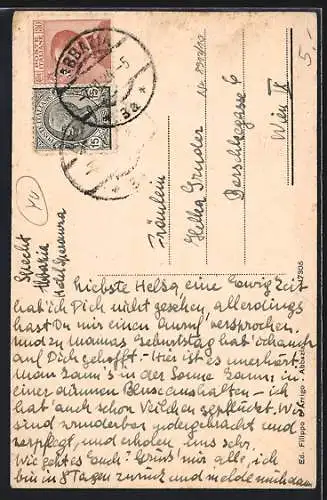 ABBAZIA
3a
POSTE ITALIANE
15
5.-
Fräulein
Helka Gruder
Borschkegasse 6
Wien IX
Specht
Abbazia
Hotel Speranza
Liebste Helka, eine Ewigkeit
hab' ich Dich nicht gesehen, allerdings
hast Du mir einen Anruf versprochen.
Und zu Mamas Geburtstag hab' ich auch
auf Dich gehofft. - Hier ist es unerhört.
Man kann's in der Sonne kaum in
einer dünnen Bluse aushalten - ich
hab' auch schon Veilchen gepflückt. Wir
sind wunderbar untergebracht und
verpflegt, und erholen uns sehr.
Wie geht es Euch? Grüss' mir alle, ich
bin in 8 Tagen zurück und melde mich dann
Ed. Filippo Abbazia
17306